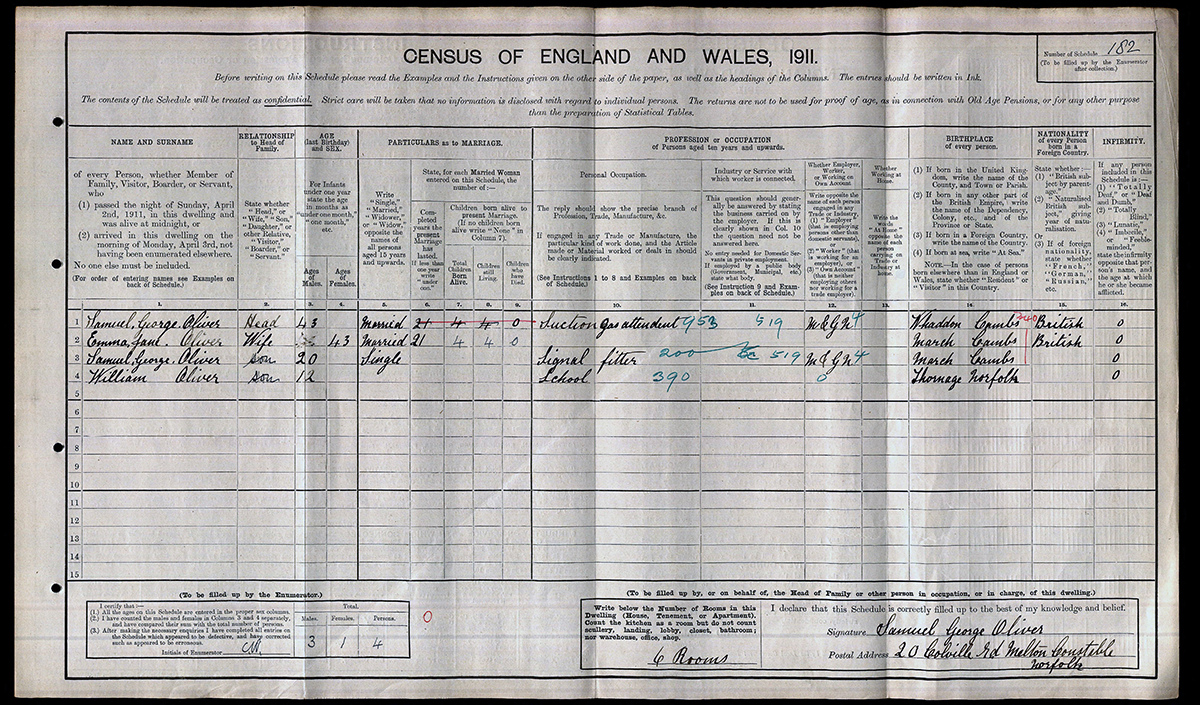 CENSUS OF ENGLAND AND WALES, 1911.
Number of Schedule 182
(To be filled up by the Enumerator after collection.)
Before writing on this Schedule please read the Examples and the Instructions given on the other side of the paper, as well as the headings of the Columns. The entries should be written in Ink.
The contents of the Schedule will be treated as confidential. Strict care will be taken that no information is disclosed with regard to individual persons. The returns are not to be used for proof of age, as in connection with Old Age Pensions, or for any other purpose
than the preparation of Statistical Tables.
NAME AND SURNAME
of every Person, whether Member of
Family, Visitor, Boarder, or Servant,
who
(1) passed the night of Sunday, April
2nd, 1911, in this dwelling and
was alive at midnight, or
(2) arrived in this dwelling on the
morning of Monday, April 3rd, not
having been enumerated elsewhere.
No one else must be included.
(For order of entering names see Examples on
back of Schedule.)
RELATIONSHIP
to Head of
Family.
State whether
"Head," or
"Wife," "Son,"
"Daughter," or
other Relative,
"Visitor,"
"Boarder," or
"Servant."
AGE
(last Birthday)
and SEX.
For Infants
under one year
state the age
in months as
"under one month,"
"one month,"
etc.
Ages
of
Males.
Ages
of
Females.
PARTICULARS as to MARRIAGE.
Write
"Single,"
"Married,"
"Widower,"
or "Widow,"
opposite the
names of
all persons
aged 15 years
and upwards.
State, for each Married Woman
entered on this Schedule, the
number of :—
Completed
years the
present
Marriage
has
lasted.
If less than
one year
write
"under
one."
Children born alive to
present Marriage.
(If no children born
alive write "None" in
Column 7).
Total
Children
Born
Alive.
Children
still
Living.
Children
who
have
Died.
PROFESSION or OCCUPATION
of Persons aged ten years and upwards.
Personal Occupation.
The reply should show the precise branch of
Profession, Trade, Manufacture, &c.
If engaged in any Trade or Manufacture, the
particular kind of work done, and the Article
made or Material worked or dealt in should
be clearly indicated.
(See Instructions 1 to 8 and Examples on back
of Schedule.)
Industry or Service with
which worker is connected.
This question should generally
be answered by stating
the business carried on by
the employer. If this is
clearly shown in Col. 10
the question need not be
answered here.
No entry needed for Domestic Servants
in private employment.
If employed by a public body
(Government, Municipal, etc.)
state what body.
(See Instruction 9 and Examples
on back of Schedule.)
Whether Employer,
Worker,
or Working on
Own Account
Write opposite the
name of each person
engaged in any
Trade or Industry,
(1) "Employer"
(that is employing
persons other than
domestic servants),
or
(2) "Worker" (that
is working for an
employer), or
(3) "Own Account"
(that is neither
employing others
nor working for a
trade employer).
Whether
Working at
Home.
Write the
words
"At Home"
opposite the
name of each
person
carrying on
Trade or
Industry at
home.
BIRTHPLACE
of every person.
(1) If born in the United Kingdom,
write the name of the
County, and Town or Parish.
(2) If born in any other part of
the British Empire, write
the name of the Dependency,
Colony, etc., and of the
Province or State.
(3) If born in a Foreign Country,
write the name of the Country.
(4) If born at sea, write "At Sea."
NOTE.—In the case of persons
born elsewhere than in England or
Wales, state whether "Resident" or
"Visitor" in this Country.
NATIONALITY
of every Person
born in a
Foreign Country.
State whether :—
(1) "British subject
by parentage."
(2) "Naturalised
British subject,"
giving
year of naturalisation.
Or
(3) If of foreign
nationality,
state whether
"French,"
"German,"
"Russian,"
etc.
INFIRMITY.
If any person
included in this
Schedule is :—
(1) "Totally
Deaf," or "Deaf
and Dumb,"
(2) "Totally
Blind,"
(3) "Lunatic,"
(4) "Imbecile,"
or "Feeble-minded,"
state the infirmity
opposite that person's
name, and
the age at which
he or she became
afflicted.
1. 2. 3. 4. 5. 6. 7. 8. 9. 10. 11. 12. 13. 14. 15. 16.
1 Samuel George Oliver Head 43 Married 21 4 4 0 Suction gas attendent 953 519 M & G N 4 Whaddon Cambs 340 British 0
2 Emma Jane Oliver Wife 43 Married 21 4 4 0 March Cambs British 0
3 Samuel George Oliver son 20 Single Signal fitter 200 519 M & G N 4 March Cambs 0
4 William Oliver son 12 School 390 0 Thornage Norfolk 0
5
6
7
8
9
10
11
12
13
14
15
(To be filled up by the Enumerator.)
I certify that :—
(1.) All the ages on this Schedule are entered in the proper sex columns.
(2.) I have counted the males and females in Columns 3 and 4 separately,
and have compared their sum with the total number of persons.
(3.) After making the necessary enquiries I have completed all entries on
the Schedule which appeared to be defective, and have corrected
such as appeared to be erroneous.
Initials of Enumerator
Total.
Males. Females. Persons.
3 1 4
0
(To be filled up by, or on behalf of, the Head of Family or other person in occupation, or in charge, of this dwelling.)
Write below the Number of Rooms in this
Dwelling (House, Tenement, or Apartment).
Count the kitchen as a room but do not count
scullery, landing, lobby, closet, bathroom;
nor warehouse, office, shop.
6 Rooms
I declare that this Schedule is correctly filled up to the best of my knowledge and belief.
Signature Samuel George Oliver
Postal Address 20 Colville Rd Melton Constable
Norfolk